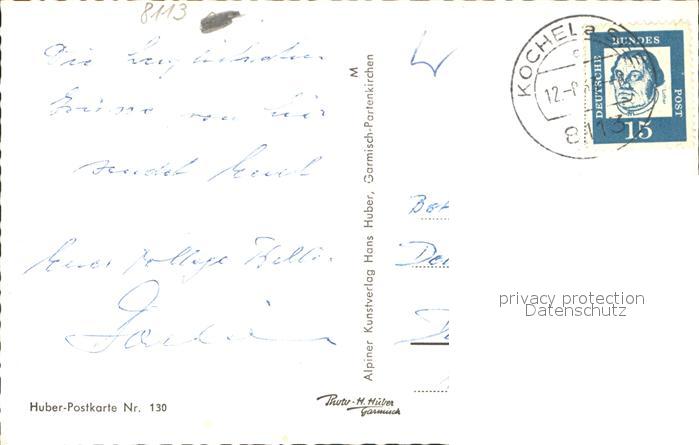 8113
Die herzlichsten
Grüße von hier
sendet Euch
Euer Kollege
Huber-Postkarte Nr. 130
M
Alpiner Kunstverlag Hans Huber, Garmisch-Partenkirchen
Photo-H. Huber
Garmisch
KOCHEL a. S
12.-8
8113
DEUTSCHE
BUNDES
POST
Luther
15
privacy protection
Datenschutz